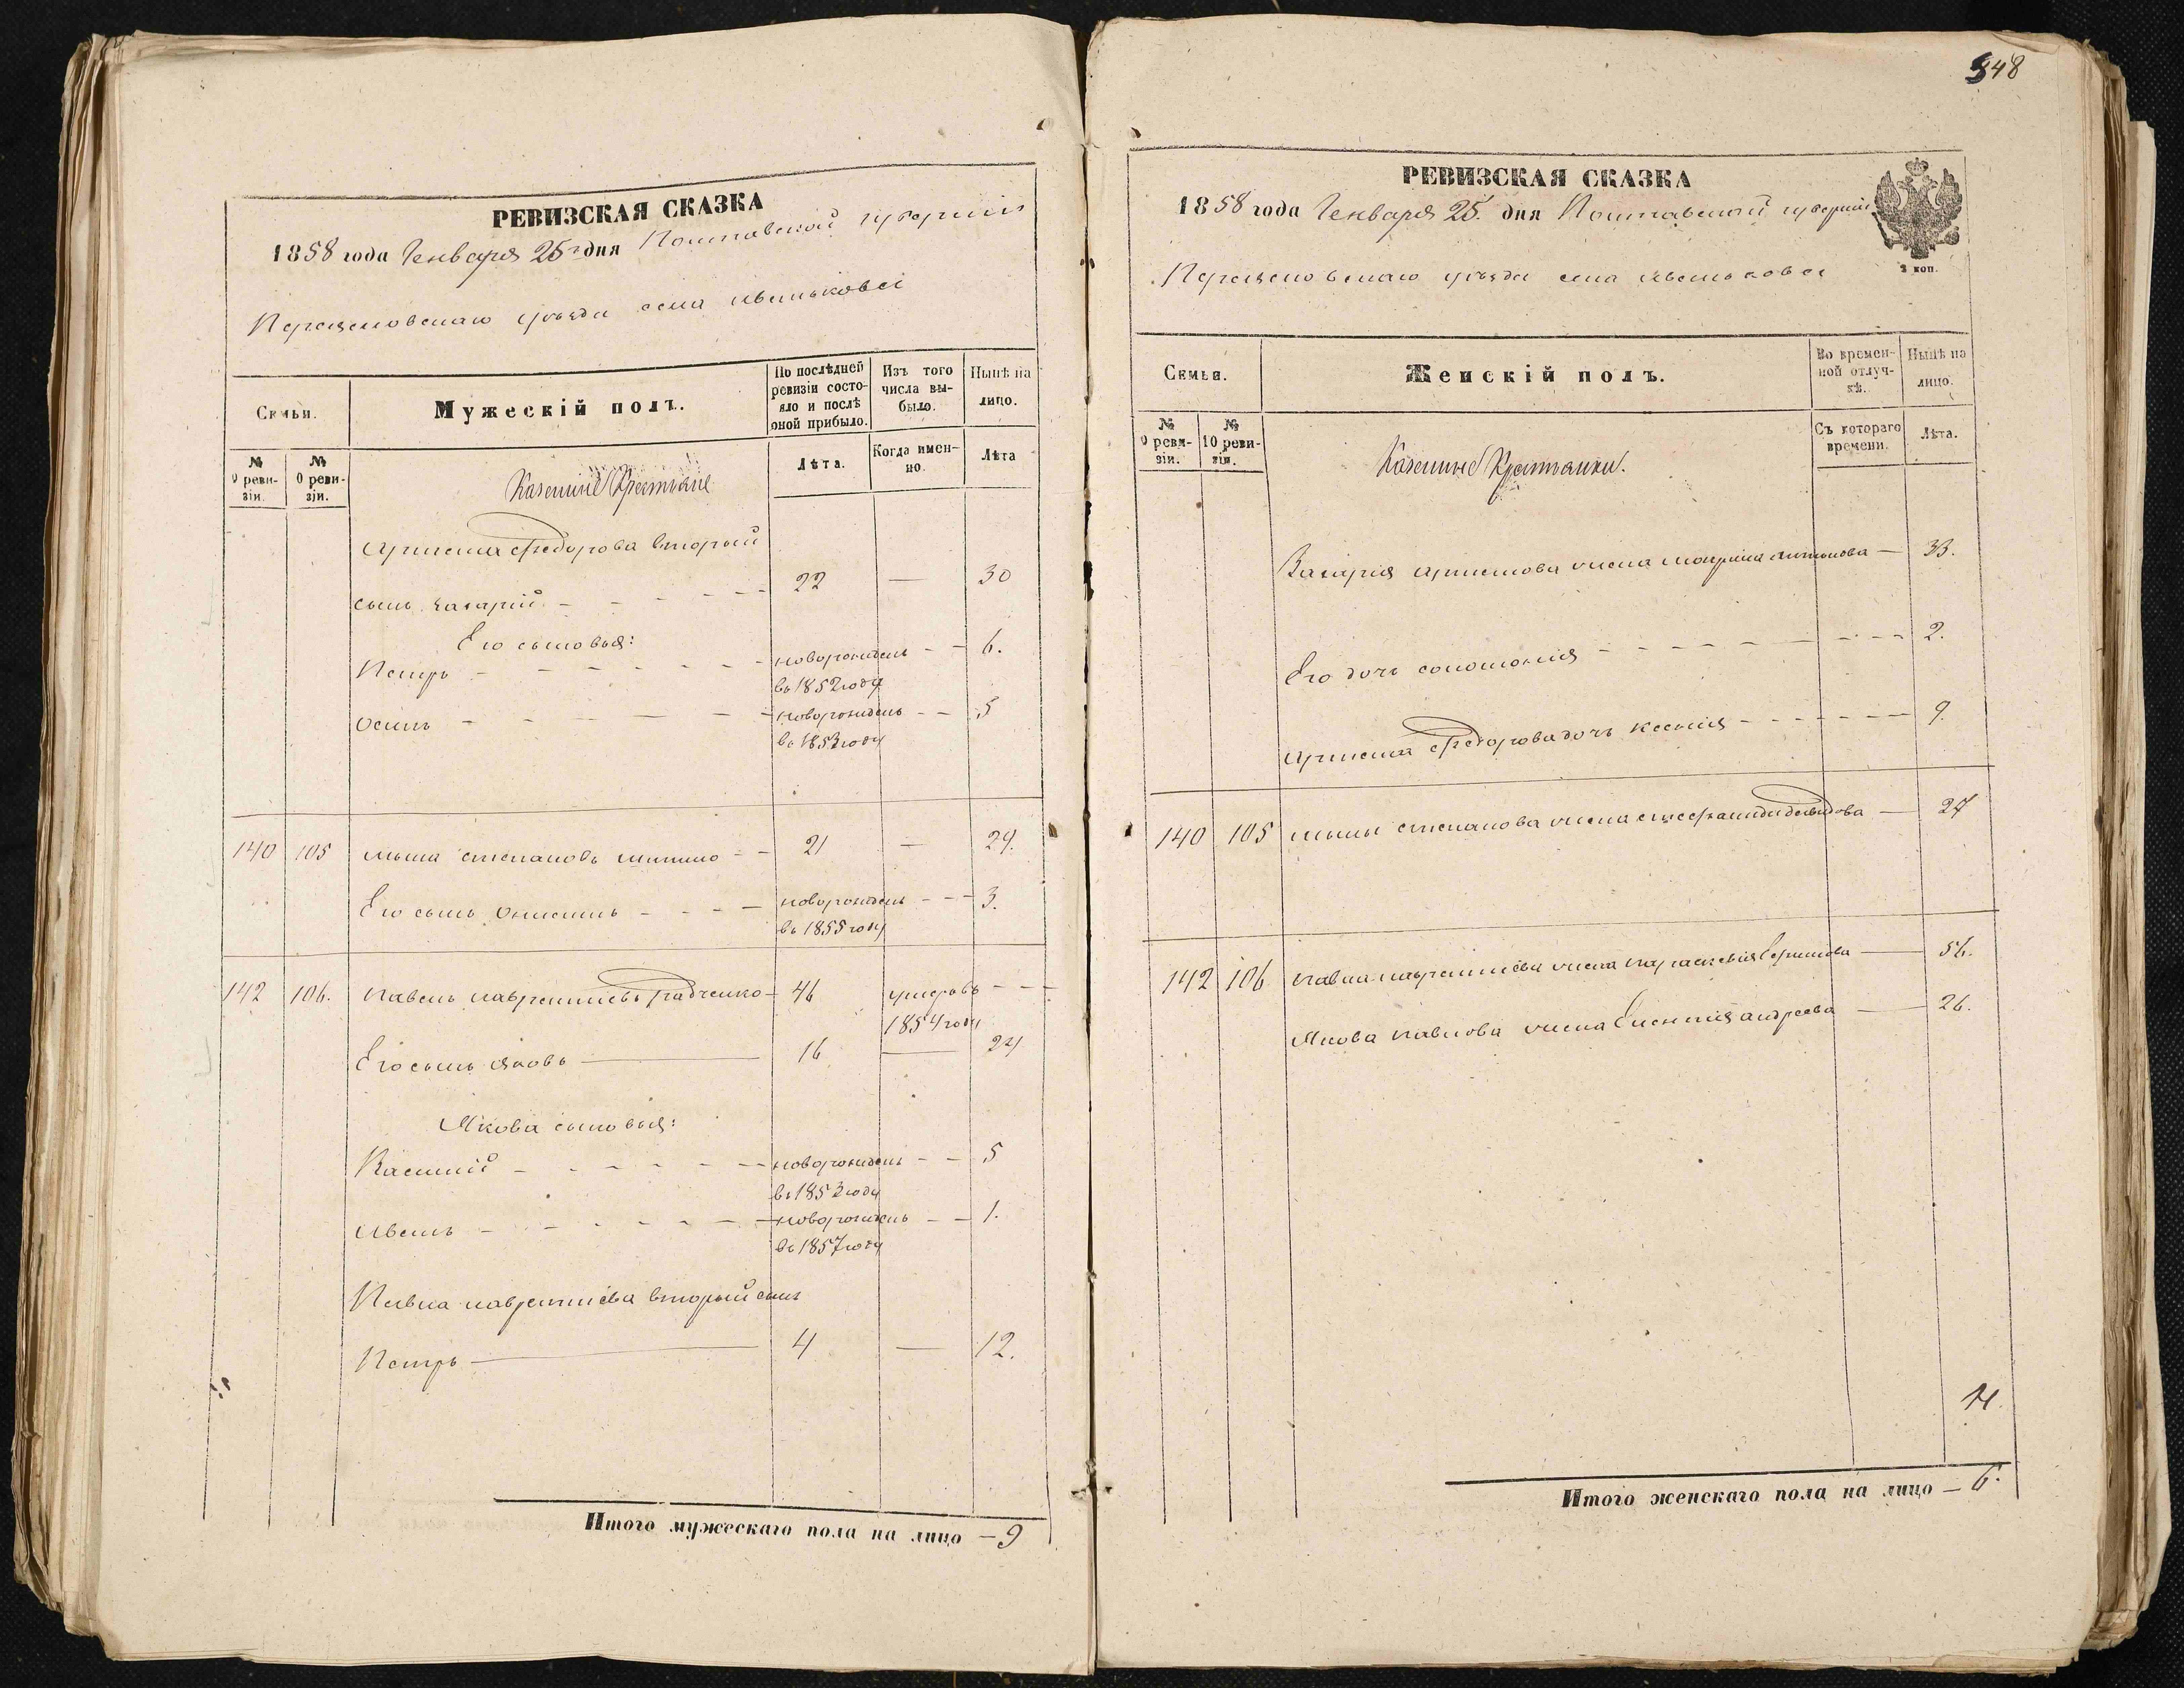 РЕВИЗСКАЯ СКАЗКА
1858 года Генваря 25 дня Полтавской губерніи
уѣзда села Ивањковec
Семьи.
Мужескій полъ.
По послѣдней ревизіи состояло и послѣ оной прибыло.
Изъ того числа выбыло.
Нынѣ на лицо.
№ 9 ревизіи.
№ 0 ревизіи.
Лѣта.
Когда именно.
Лѣта
Казенные Крестьяне
Федорова вторый
сынъ Захарій 22 — 30
Его сыновья:
Петръ новорожденъ 6.
въ 1852 году
Осипъ новорожденъ 5
въ 1853 году
140 105 Степановъ 21 — 29.
Его сынъ Онисимъ новорожденъ 3.
въ 1855 году
142 106. Павелъ Лаврентіевъ Радченко 46
1854 году
Его сынъ Яковъ 16 — 24
Якова сыновья:
Василій новорожденъ 5
въ 1853 году
Иванъ новорожденъ 1.
въ 1857 году
Павла Лаврентіева вторый сынъ
Петръ 4 — 12.
Итого мужескаго пола на лицо — 9
348
РЕВИЗСКАЯ СКАЗКА
1858 года Генваря 25. дня Полтавской губерніи
3 коп.
уѣзда села
Семьи.
Женскій полъ.
Во временной отлучкѣ.
Нынѣ на лицо.
№ 9 ревизіи.
№ 10 ревизіи.
Съ котораго времени.
Лѣта.
Казенные Крестьянки.
Захарія жена — 33.
Его дочь Соломонія 2.
Федорова дочь Ксенія 9.
140 105 Степанова жена Давидова — 27
142 106 Павла Лаврентіева жена Параскевія — 56.
Якова Павлова жена Андреева — 26.
Итого женскаго пола на лицо — 6.